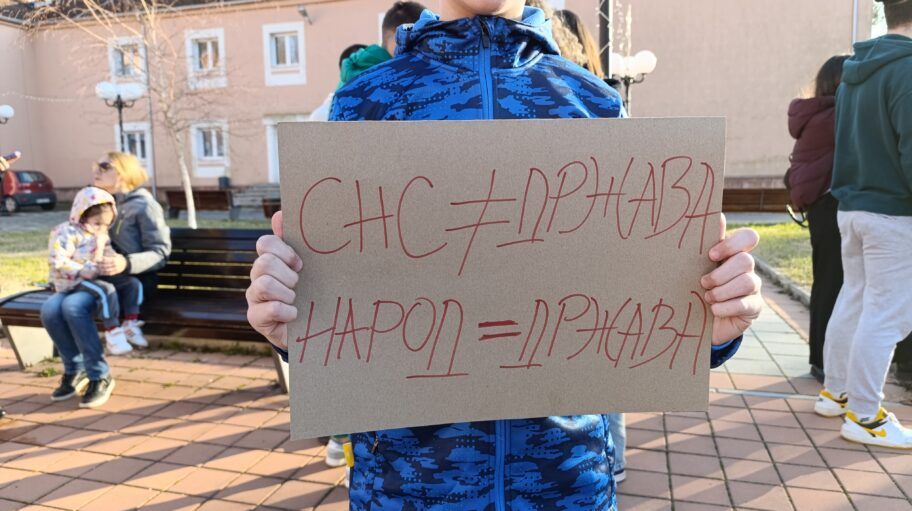 СНС ≠ ДРЖАВА
НАРОД = ДРЖАВА